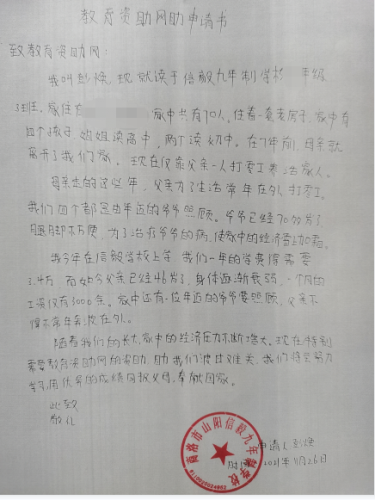 教育资助网助申请书
致教育资助网:
我叫彭,现就读于信毅九年制学校 年级
3班,家住在 家中共有70人,住着一套老房子,家中有
四个孩子,姐姐读高中,两个读初中,在7年前,母亲就
离开了我们家,现在仅靠父亲一人打零工养活家人。
母亲走的这些年,父亲为了生活常年在外打零工,
我们四个都是由年迈的爷爷照顾,爷爷已经70多岁了
腿脚不方便,为了治疗爷爷的病,使家中的经济雪上加霜。
我今年在信毅学校上学,我们一年的学费得需要
1.4万,而如今父亲已经46岁了,身体逐渐衰弱,一个月的
工资仅有3000左右。家中还有一位年迈的爷爷要照顾,父亲不
得不常年奔波在外。
随着我们的长大,家中的经济压力不断增大,现在特别
需要教育资助网的资助,助我们渡过难关,我们将会努力
学习,用优异的成绩回报父母,奉献国家。
此致
敬礼
申请人:彭
2021年11月26日
商洛市山阳信毅九年制学校